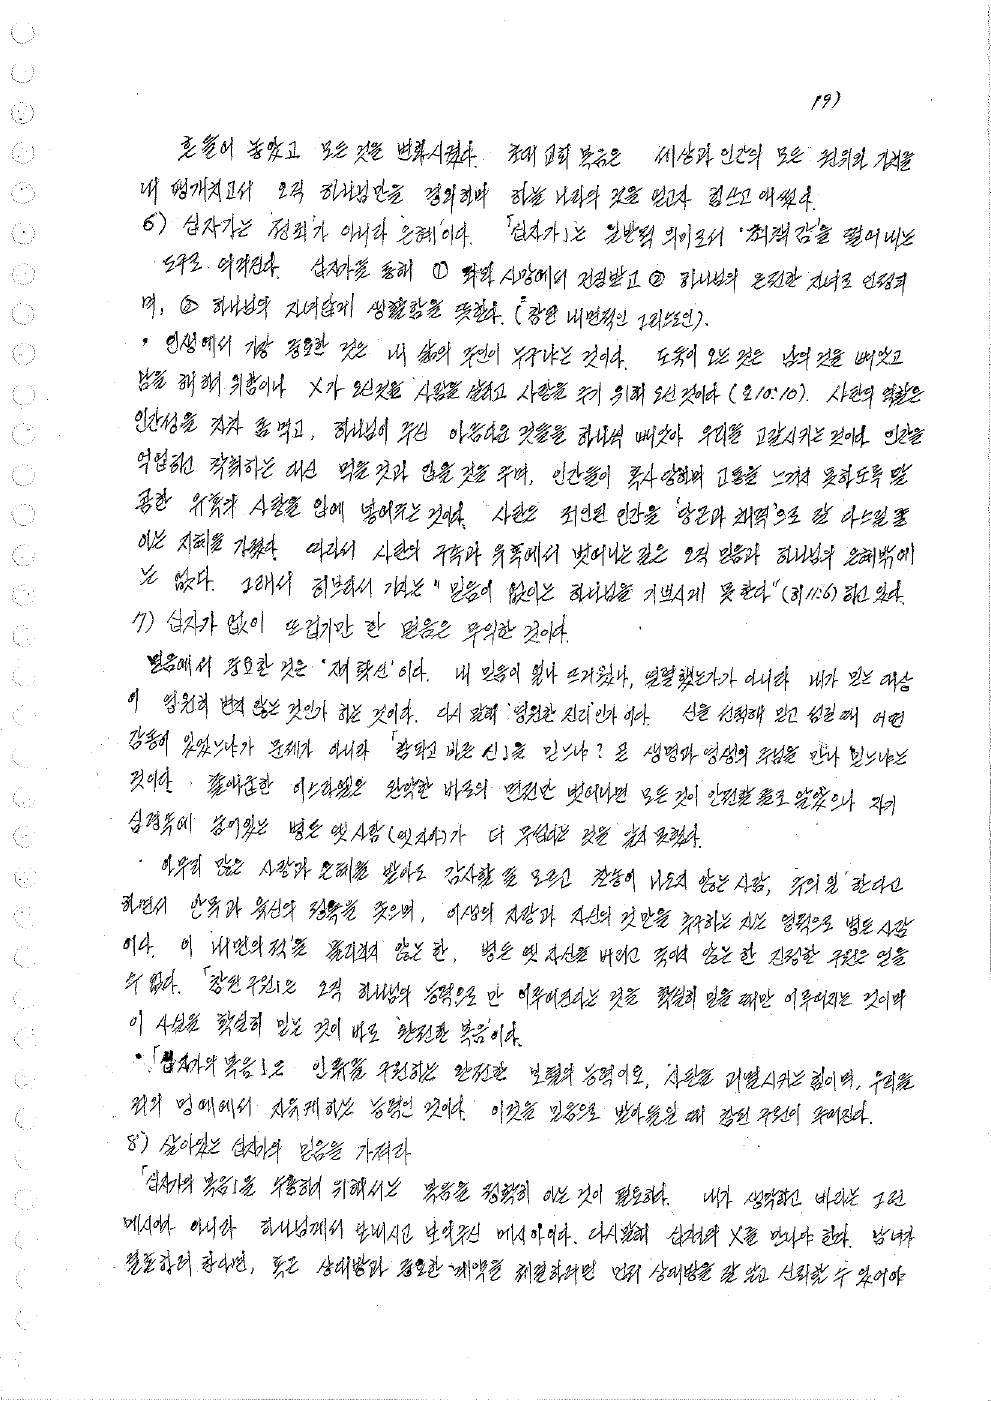 19)
흔들어 놓았고 모든 것을 변화시켰다. 초대교회 복음은 세상과 인간의 모든 권위와 가치를
내 팽개치고서 오직 하나님만을 경외하며 하늘 나라의 것을 얻고자 힘쓰고 애썼다.
6) 십자가는 '정죄'가 아니라 은혜'이다. 「십자가」는 일반적 의미로서 '죄책감'을 떨어내는
도구로 여겨진다. 십자가를 통해 ① 죄와 사망에서 건짐받고 ② 하나님의 온전한 자녀로 인정되
며, ③ 하나님의 자녀답게 생활함을 뜻한다. (참된 내면적인 그리스도인).
• 인생에서 가장 중요한 것은 내 삶의 주인이 누구냐는 것이다. 도둑이 오는 것은 남의 것을 빼앗고
남을 해하려 위함이나 X가 오신것은 사람을 살리고 사랑을 주기 위해 오신 것이다 (요10:10). 사탄의 역할은
인간성을 차차 좀먹고, 하나님이 주신 아름다운 것들을 하나씩 빼앗아 우리를 고갈시키는 것이다. 인간을
억압하고 착취하는 대신 먹을 것과 입을 것을 주며, 인간들이 혹사 당하며 고통을 느끼지 못하도록 달
콤한 유혹의 사탕을 입에 넣어주는 것이다. 사탄은 죄인된 인간을 '당근과 채찍'으로 잘 다스릴 줄
아는 지혜를 가졌다. 따라서 사탄의 구속과 유혹에서 벗어나는 길은 오직 믿음과 하나님의 은혜밖에
는 없다. 그래서 히브리서 기자는 "믿음이 없이는 하나님을 기쁘시게 못한다"(히11:6)하고 있다.
7) 십자가 없이 뜨겁기만 한 믿음은 무익한 것이다.
믿음에서 중요한 것은 '자기확신'이다. 내 믿음이 얼마나 뜨거웠나, 열렬했는가가 아니라 내가 믿는 대상
이 영원히 변치 않는 것인가 하는 것이다. 다시 말해 '영원한 진리'인가 이다. 신을 선택해 믿고 섬길 때 어떤
감동이 있었느냐가 문제가 아니라 「참되고 바른 신」을 믿느냐? 곧 생명과 영성의 주님을 만나 믿느냐는
것이다. 출애굽한 이스라엘은 완악한 바로의 면전만 벗어나면 모든 것이 안전할 줄로 알았으나 자기
심령속에 숨어있는 병든 옛사람(옛자아)가 더 무섭다는 것을 알지 못했다.
• 아무리 많은 사랑과 은혜를 받아도 감사할 줄 모르고 찬송이 나오지 않는 사람, 주의 일 한다고
하면서 안목과 육신의 정욕을 좇으며, 이생의 자랑과 자신의 것만을 추구하는 자는 영적으로 병든 사람
이다. 이 '내면의 적'을 물리치지 않는 한, 병든 옛 자신을 버리고 죽이지 않는 한 진정한 구원은 얻을
수 없다. 「참된 구원」은 오직 하나님의 능력으로 만 이루어진다는 것을 확실히 믿을 때만 이루어지는 것이며
이 사실을 확실히 믿는 것이 바로 '완전한 복음'이다.
• 「십자가의 복음」은 인류를 구원하는 완전한 보혈의 능력이요, 사탄을 괴멸시키는 힘이며, 우리를
죄의 멍에에서 자유케 하는 능력인 것이다. 이것을 믿음으로 받아들일 때 참된 구원이 주어진다.
8) 살아있는 십자가의 믿음을 가져라
「십자가의 복음」을 누림하여 위해서는 복음을 정확히 아는 것이 필요하다. 내가 생각하고 바라는 그런
메시야 아니라 하나님께서 보내시고 보여주신 메시야이다. 다시말해 십자가의 X를 만나야 한다. 남녀가
결혼하려 한다면, 혹은 상대방과 중요한 계약을 체결하려면 먼저 상대방을 잘 알고 신뢰할 수 있어야